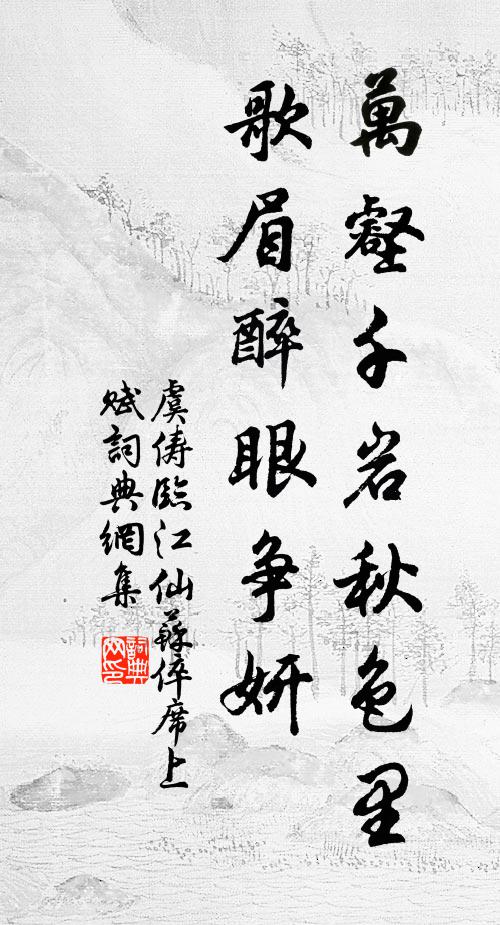 萬壑千岩秋色里
歌眉醉眼争妍
虞俦臨江仙蘇倅席上
賦詞典網集
詞典网印